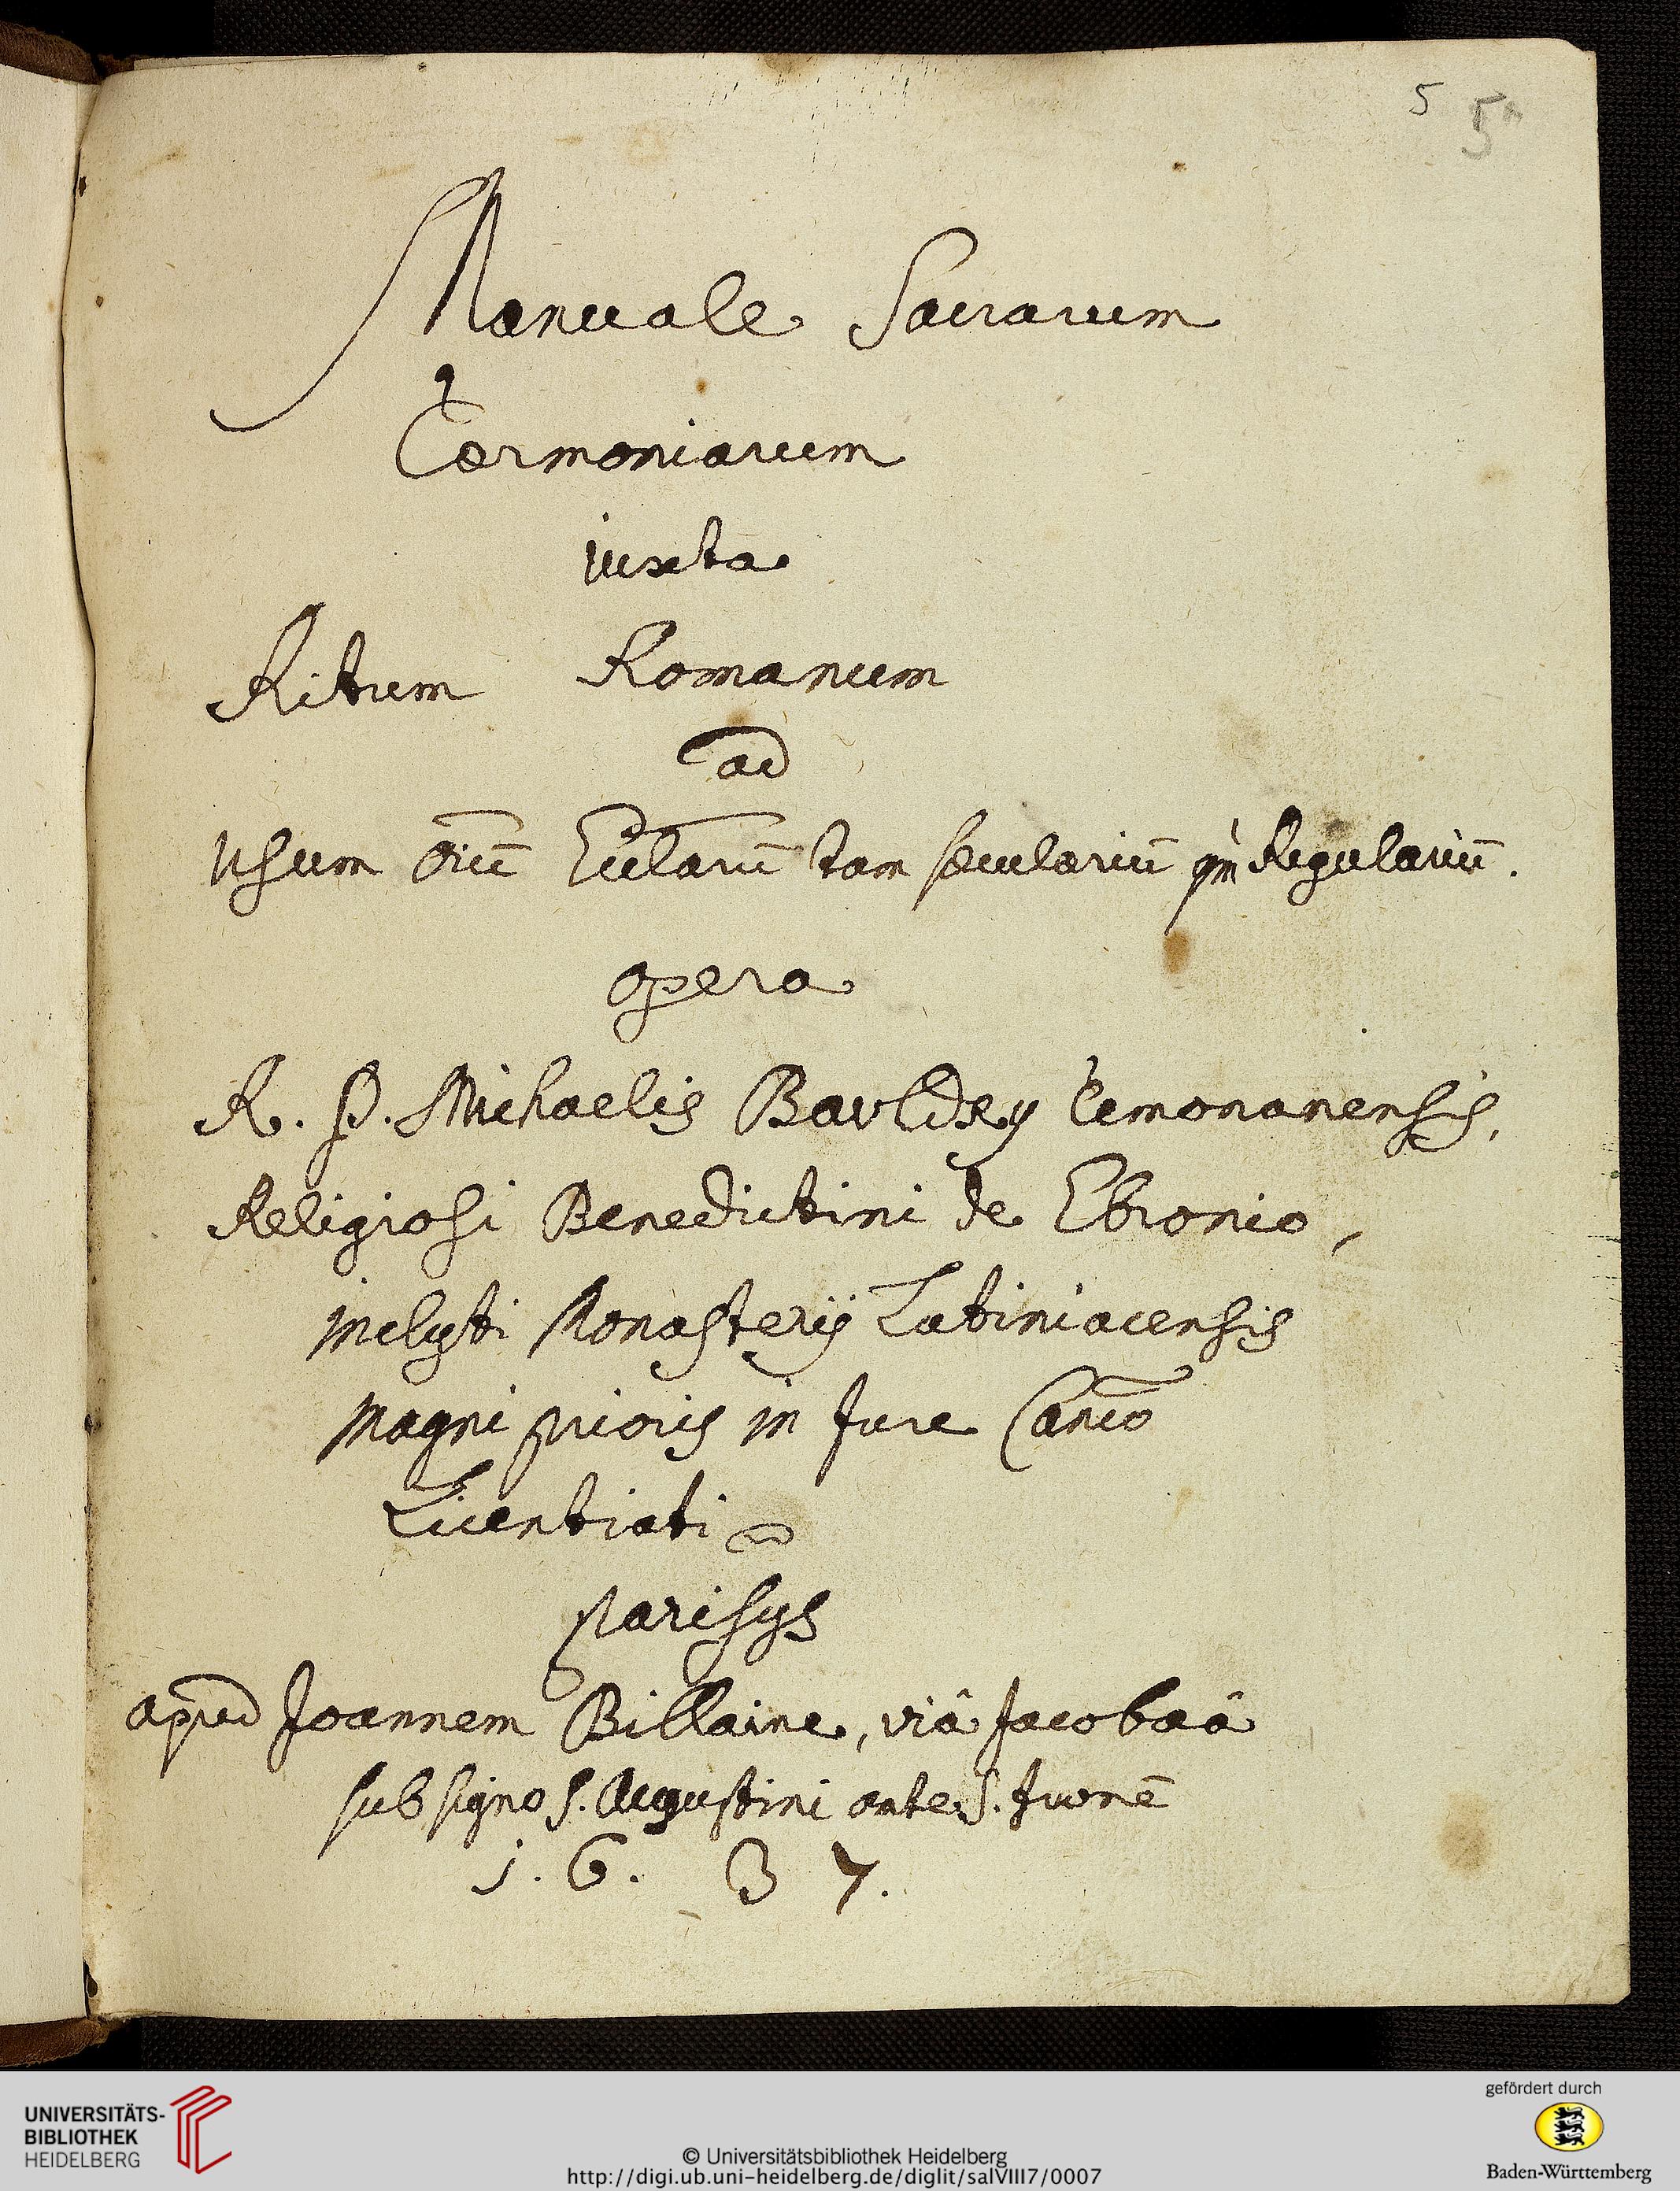 5 5
Manuale Sacrarum
Cærmoniarum
iuxta
Ritum Romanum
ad
usum oīū Ecclarū tam secularium qm̄ Regulariū.
opera
R. P. Michaelis Bauldry Cemonanensis,
Religiosi Benedictini de Ebronio,
inclyti Monasterij Latiniacensis
magni prioris in Jure Canco
Licentiati
parisijs
apud Joannem Billaine, viâ Jacobaeâ
sub signo S. Augustini ante S. Iuonē
1. 6. 3 7.
UNIVERSITÄTS-
BIBLIOTHEK
HEIDELBERG
© Universitätsbibliothek Heidelberg
http://digi.ub.uni-heidelberg.de/diglit/salVIII7/0007
gefördert durch
Baden-Württemberg